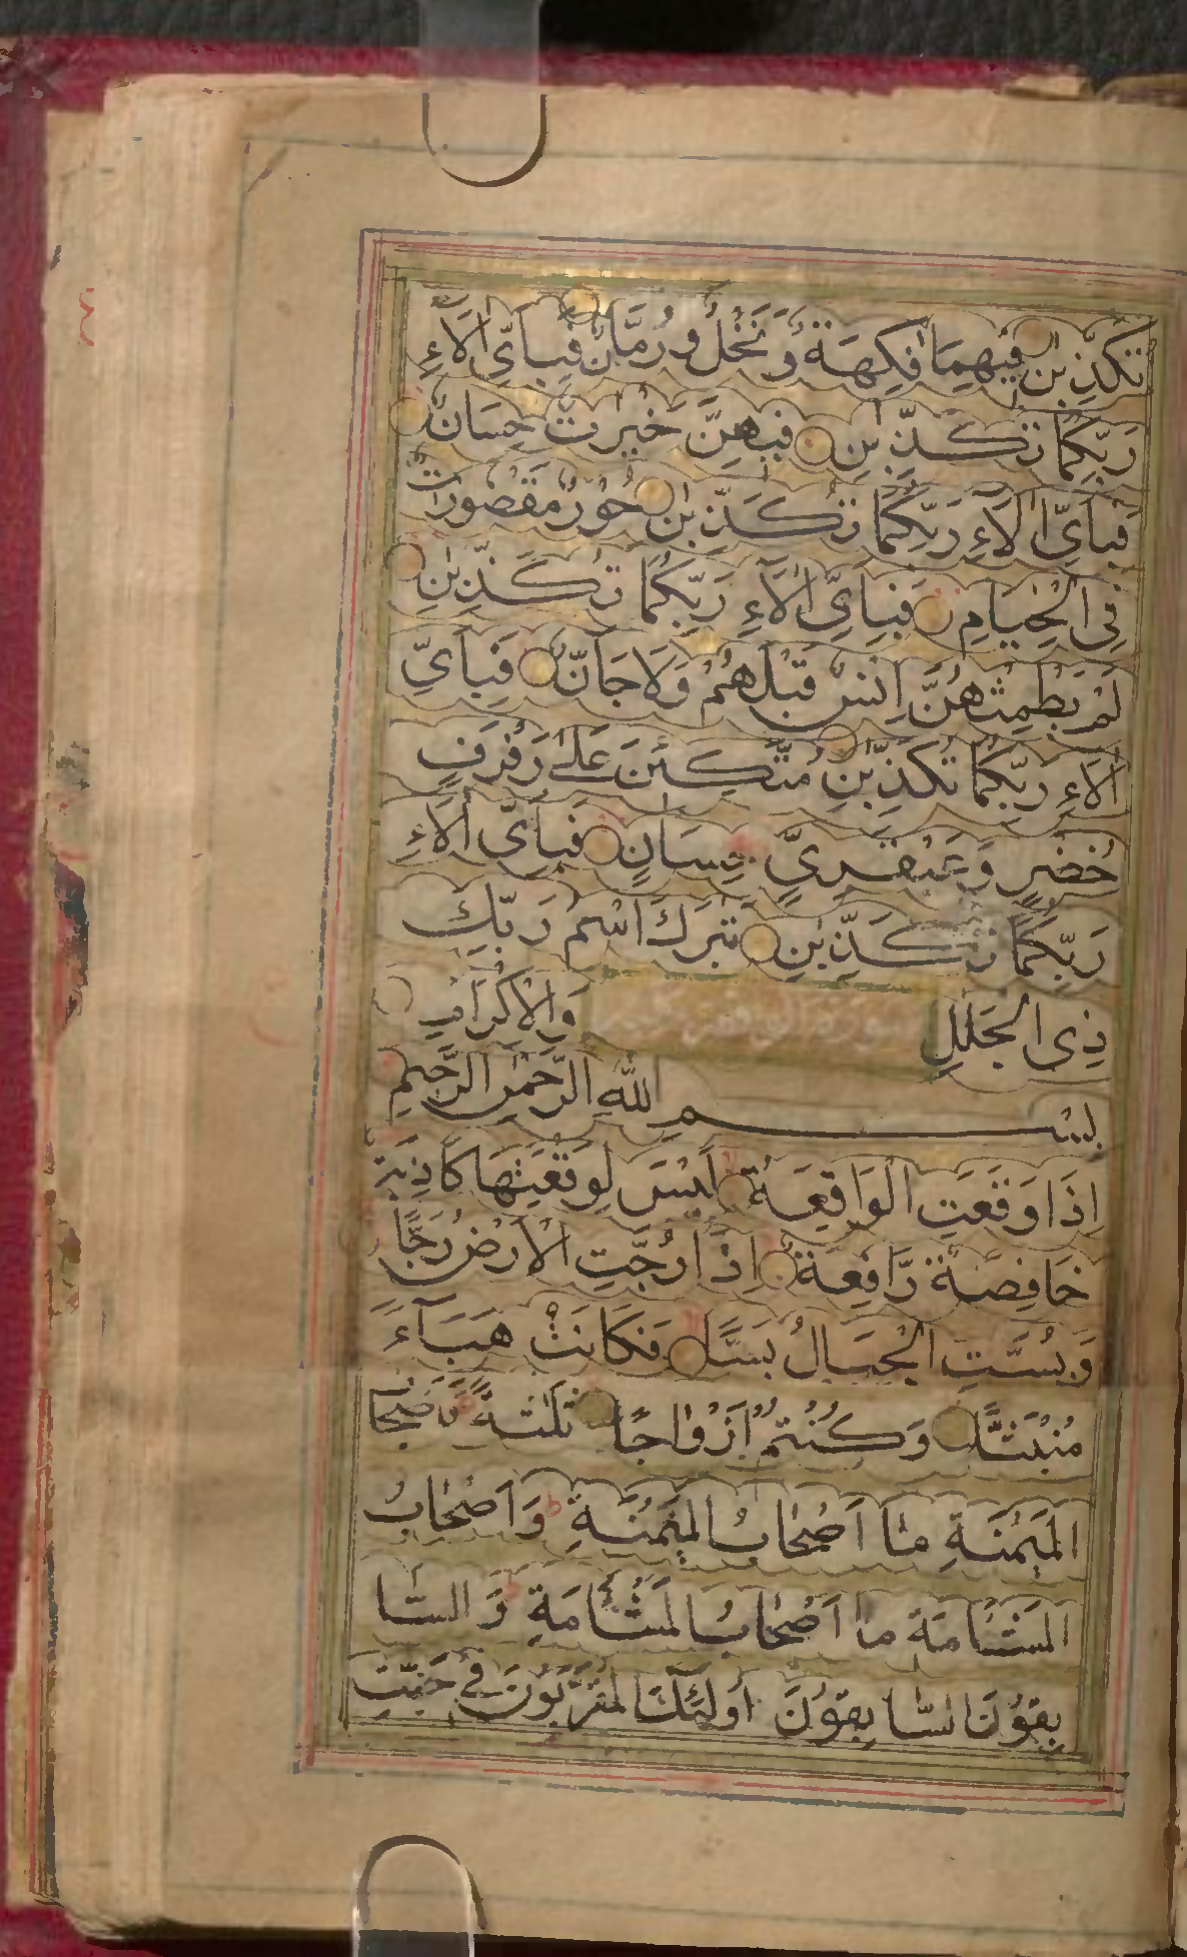 تُكَذِّبٰنِ فِيْهِمَا فَاكِهَةٌ وَّنَخْلٌ وَّرُمَّانٌ فَبِاَيِّ اٰلَآءِ
رَبِّكُمَا تُكَذِّبٰنِ فِيْهِنَّ خَيْرٰتٌ حِسَانٌ
فَبِاَيِّ اٰلَآءِ رَبِّكُمَا تُكَذِّبٰنِ حُوْرٌ مَّقْصُوْرَاتٌ
فِي الْخِيَامِ فَبِاَيِّ اٰلَآءِ رَبِّكُمَا تُكَذِّبٰنِ
لَمْ يَطْمِثْهُنَّ اِنْسٌ قَبْلَهُمْ وَلَا جَآنٌّ فَبِاَيِّ
اٰلَآءِ رَبِّكُمَا تُكَذِّبٰنِ مُتَّكِـِٕيْنَ عَلٰى رَفْرَفٍ
خُضْرٍ وَّعَبْقَرِيٍّ حِسَانٍ فَبِاَيِّ اٰلَآءِ
رَبِّكُمَا تُكَذِّبٰنِ تَبٰرَكَ اسْمُ رَبِّكَ
ذِى الْجَلٰلِ وَالْاِكْرَامِ
سورة الواقعة
بِسْمِ اللّٰهِ الرَّحْمٰنِ الرَّحِيْمِ
اِذَا وَقَعَتِ الْوَاقِعَةُ لَيْسَ لِوَقْعَتِهَا كَاذِبَةٌ
خَافِضَةٌ رَّافِعَةٌ اِذَا رُجَّتِ الْاَرْضُ رَجًّا
وَّبُسَّتِ الْجِبَالُ بَسًّا فَكَانَتْ هَبَآءً
مُّنْبَثًّا وَّكُنْتُمْ اَزْوَاجًا ثَلٰثَةً فَاَصْحَا
الْمَيْمَنَةِ مَا اَصْحَابُ الْمَيْمَنَةِ وَاَصْحَابُ
الْمَشْئَامَةِ مَا اَصْحَابُ الْمَشْئَامَةِ وَالسَّا
بِقُوْنَ السَّابِقُوْنَ اُولٰٓئِكَ الْمُقَرَّبُوْنَ فِيْ جَنّٰتِ